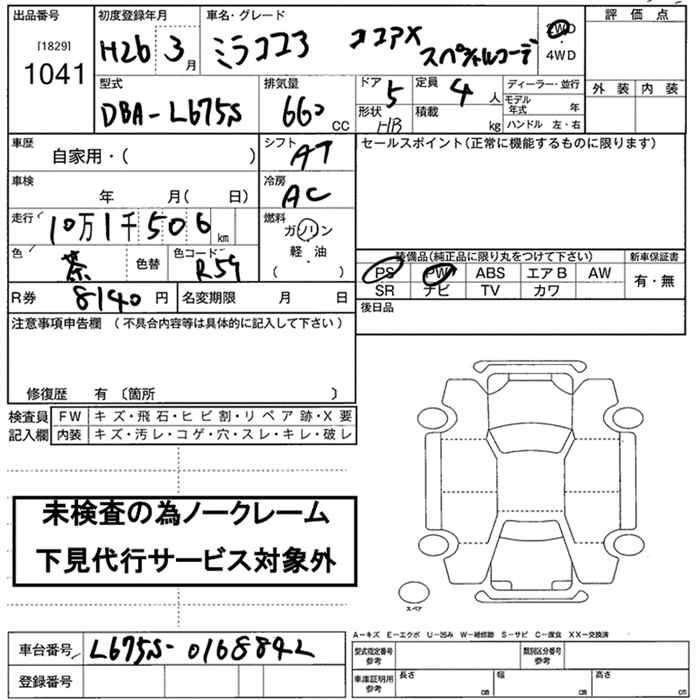 出品番号 初度登録年月 車名・グレード 評価点
[1829] 1041 H26 3月 ミラココア ココアX スペシャルコーデ 2WD・4WD
型式 排気量 ドア 定員 ディーラー・並行 外装 内装
DBA-L675S 660 CC 5 4人 モデル年式 年
形状 HB 積載 kg ハンドル 左・右
車歴 自家用・( ) シフト AT セールスポイント(正常に機能するものに限ります)
車検 年 月( 日) 冷房 AC
走行 10万1千506km 燃料 ガソリン・軽油 ( )
色 茶 色替 色コード R59 装備品(純正品に限り丸をつけて下さい) 新車保証書
PS PW ABS エアB AW 有・無
SR ナビ TV カワ
R券 8140円 名変期限 月 日 後日品
注意事項申告欄(不具合内容等は具体的に記入して下さい)
修復歴 有〔箇所 〕
検査員記入欄 FW キズ・飛石・ヒビ割・リペア跡・X要
内装 キズ・汚レ・コゲ・穴・スレ・キレ・破レ
未検査の為ノークレーム
下見代行サービス対象外
スペア
A-キズ E-エクボ U-凹み W-補修跡 S-サビ C-腐食 XX-交換済
車台番号 L675S-0168842 型式指定番号 参考 類別区分番号 参考
登録番号 車庫証明用 参考 長さ cm 幅 cm 高さ cm